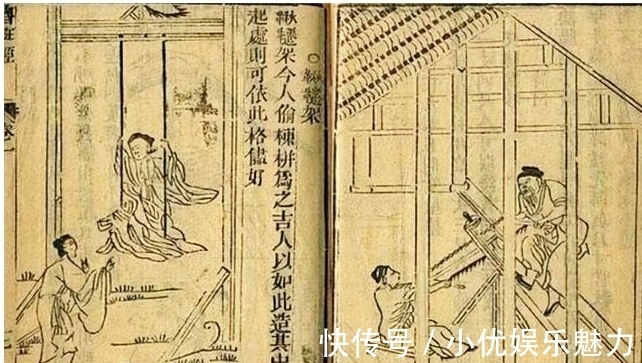 ○鞦韆架
鞦韆架今人偷棟栟爲之吉人以如此造其中
起處則可依此格儘好
快传号 / 小优娱乐魅力